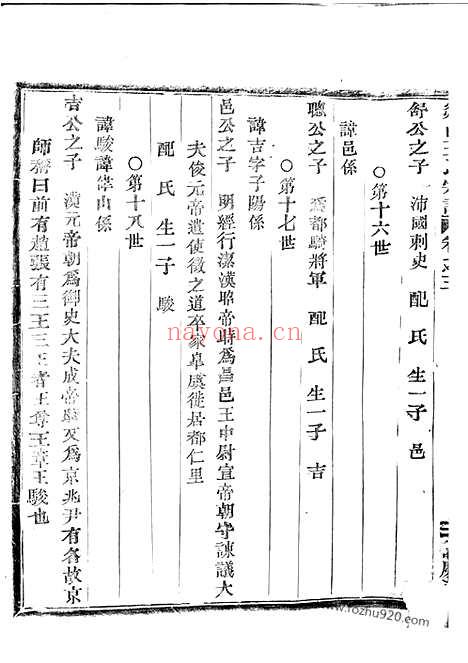 舒公之子 沛國刺史 配 氏 生一子 邑
○第十六世
諱邑係
聰公之子 爲都騎將軍 配 氏 生一子 吉
○第十七世
諱吉字子陽係
邑公之子 明經行潔漢昭帝時爲昌邑王中尉宣帝朝守諫議大
夫後元帝遣使徵之道卒家皐虞徙居都仁里
配 氏 生一子 駿
○第十八世
諱駿諱 山係
吉公之子 漢元帝朝爲御史大夫成帝 又爲京兆尹有名故京
師 曰前有趙張有三王三王者王尊王章王駿也
nayona.cn
www.rozhu920.com